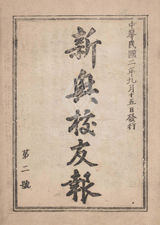 中華民國二年九月十五日發行
新輿校友報
第二號